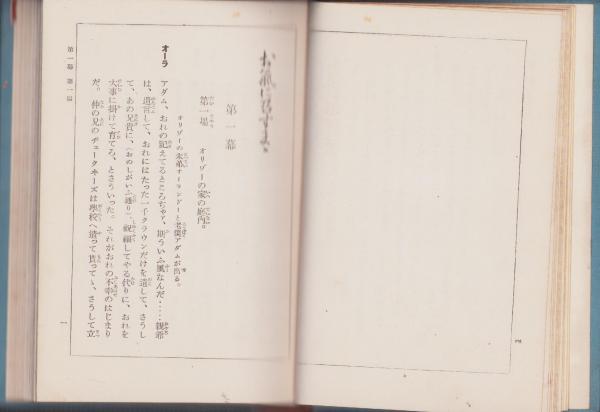 お氣に召すまゝ
第一幕
第一場　オリヷーの家の庭內。
オリヷーの末弟オーランドーと老僕アダムが出る。
オーラ　アダム、おれの記えてるところぢゃァ、斯ういふ風なんだ……親爺
は、遺言して、おれにはたった一千クラウンだけを遺して、さうし
て、あの兄貴に、(おめしがいふ通り)、祝福してやる代りに、おれを
大事に掛けて育てろ、とさういった。それがおれの不幸のはじまり
だ。仲の兄のヂェークヰーズは學校へ遣って貰ってゝ、さうして立
第一幕　第一場
一